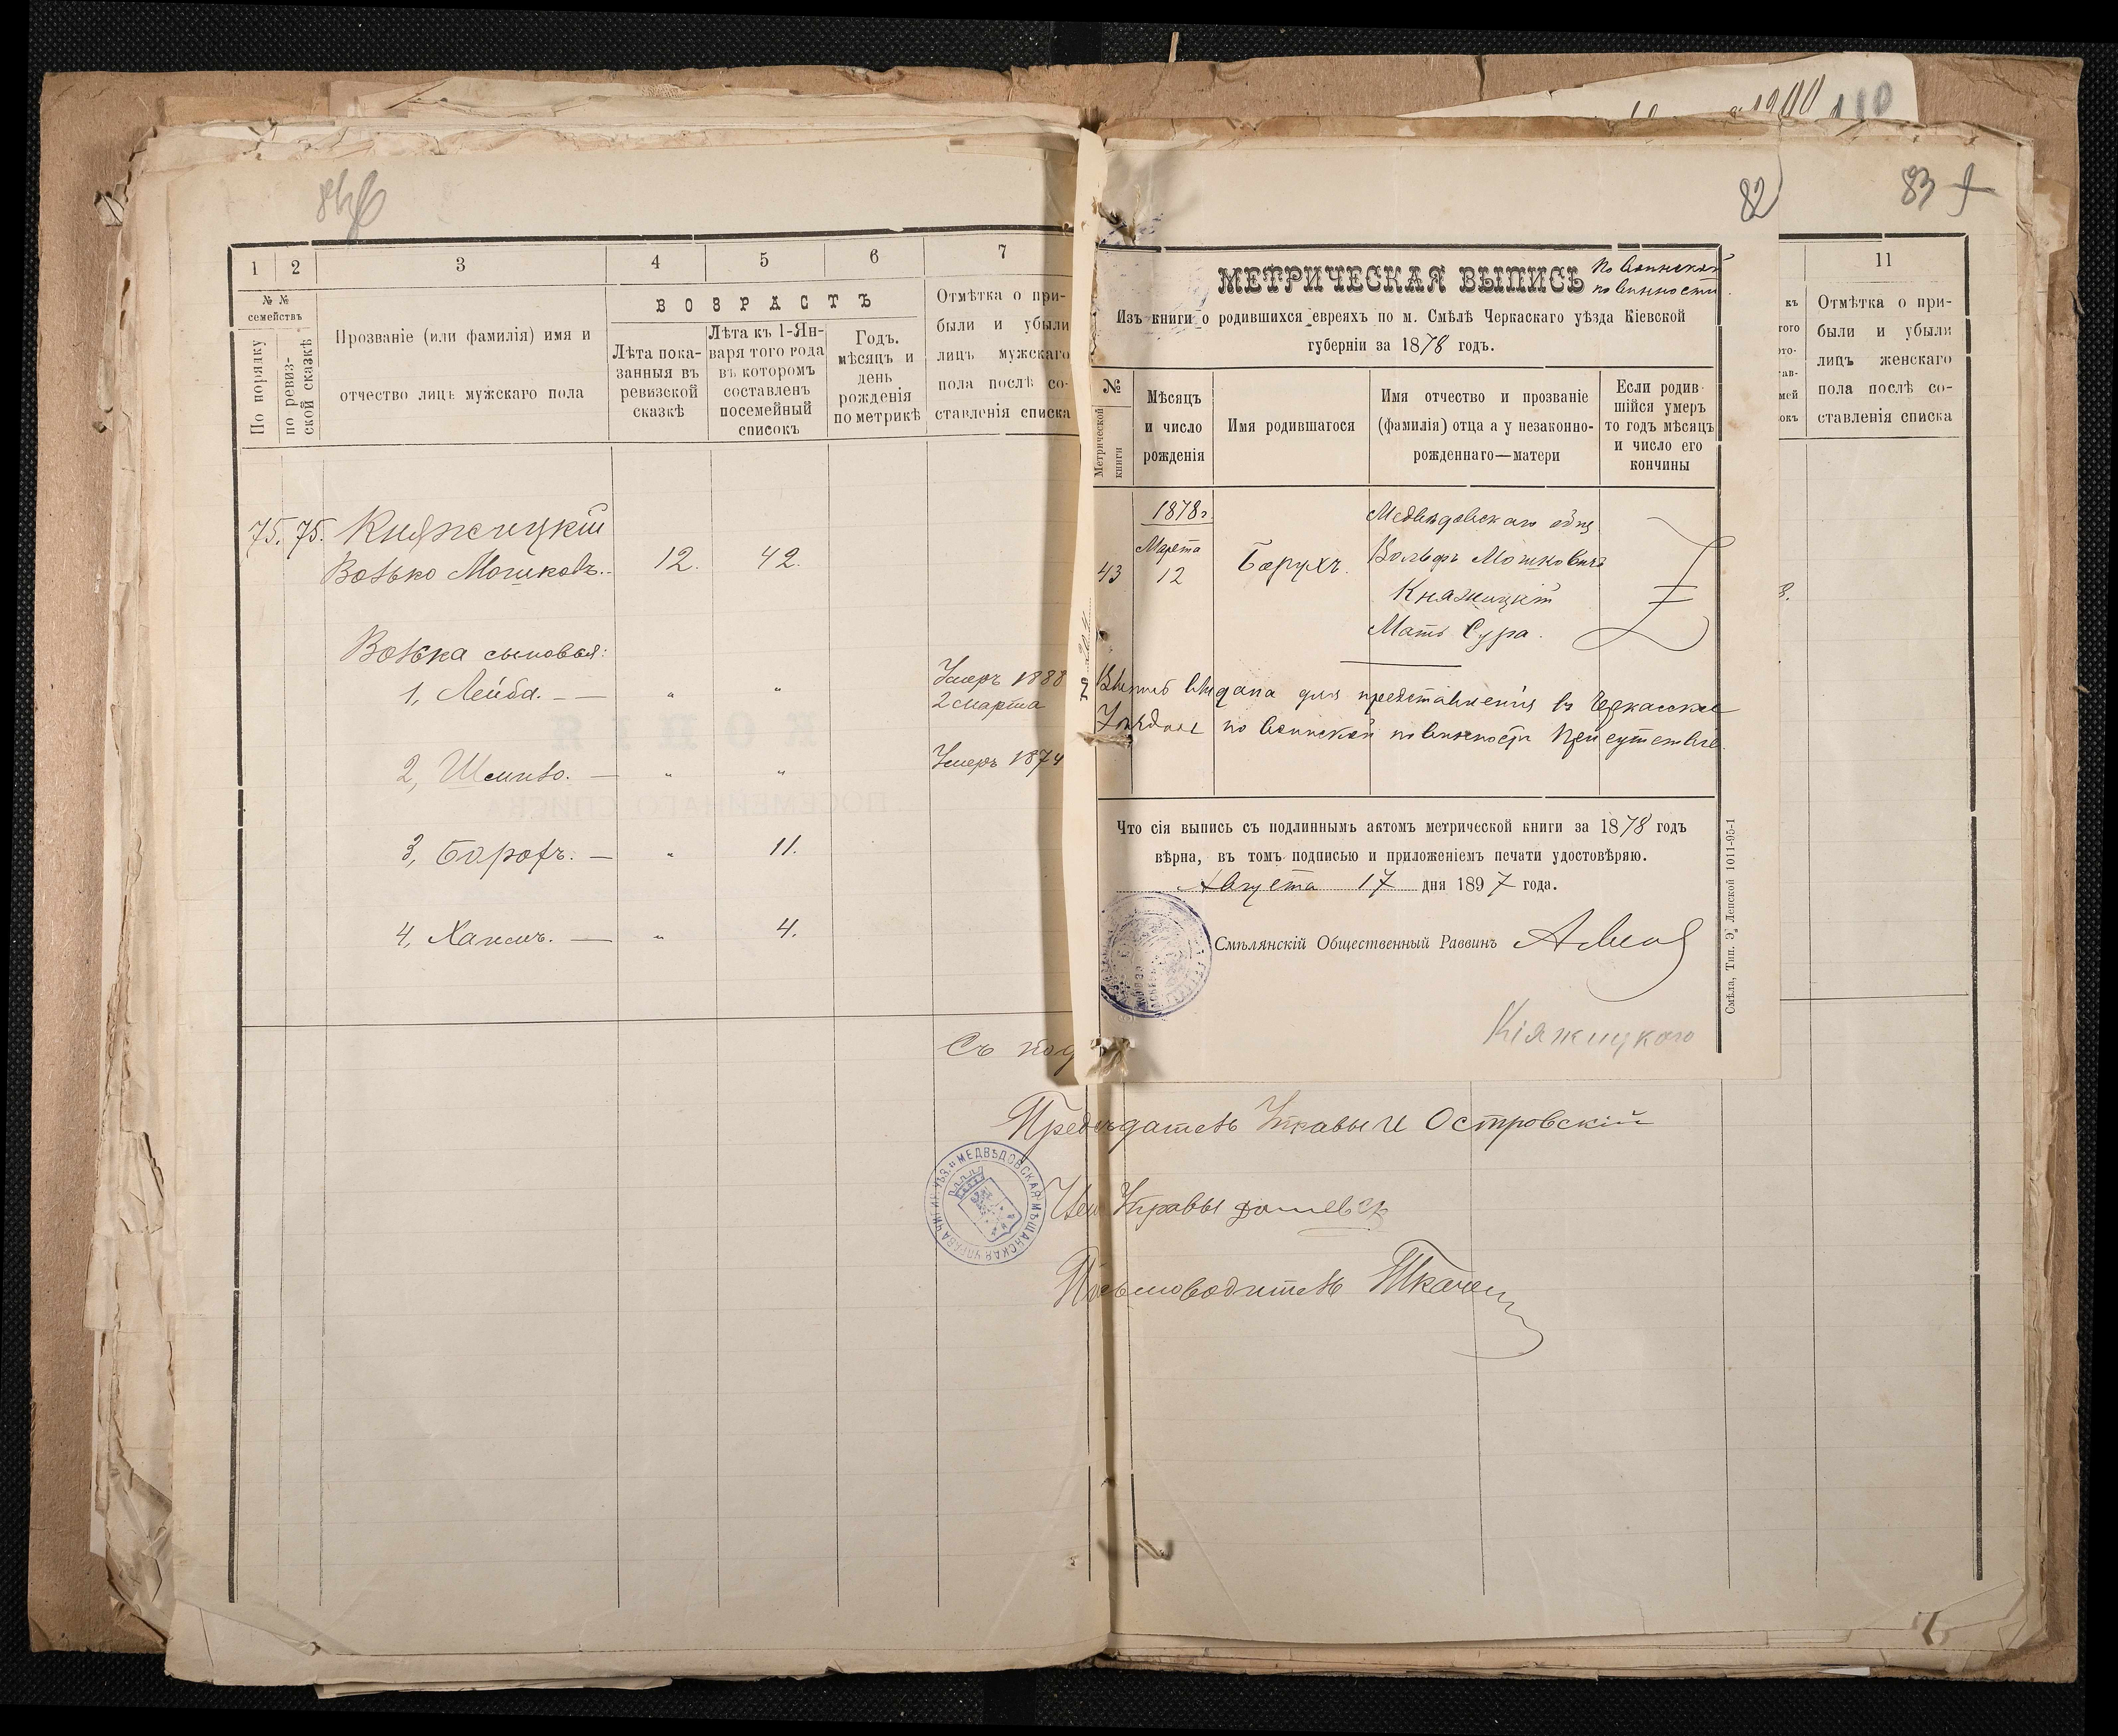 1900 110
82
83
1
2
3
4
5
6
7
№ №
семействъ
По порядку
по ревиз-
ской сказкѣ
Прозваніе (или фамилія) имя и
отчество лицъ мужскаго пола
ВОЗРАСТЪ
Лѣта пока-
занныя въ
ревизской
сказкѣ
Лѣта къ 1-Ян-
варя того года
въ которомъ
составленъ
посемейный
списокъ
Годъ.
мѣсяцъ и
день
рожденія
по метрикѣ
Отмѣтка о при-
были и убыли
лицъ мужскаго
пола послѣ со-
ставленія списка
75. 75. Княжицкій
Волько Мошковъ. 12. 42.
Волька сыновья:
1, Лейба. — " " Умеръ 1888
2 марта
2, Шмилъ. — " " Умеръ 1874
3, Борохъ. — " 11.
4, Хаимъ. — " 4.
Съ под
МЕТРИЧЕСКАЯ ВЫПИСЬ
По воинской
повинности.
Изъ книги о родившихся евреяхъ по м. Смѣлѣ Черкаскаго уѣзда Кіевской
губерніи за 1878 годъ.
№
Метрической
книги
Мѣсяцъ
и число
рожденія
Имя родившагося
Имя отчество и прозваніе
(фамилія) отца а у незаконно-
рожденнаго—матери
Если родив-
шійся умеръ
то годъ мѣсяцъ
и число его
кончины
1878 г.
Марта
43 12
Борухъ.
Медвѣдовскаго общ
Вольфъ Мошковичъ
Княжицкій
Мать Сура.
Выпись выдана для представленія въ Черкасское
Уѣздное по воинской повинности Присутствіе.
Что сія выпись съ подлиннымъ актомъ метрической книги за 1878 годъ
вѣрна, въ томъ подписью и приложеніемъ печати удостовѣряю.
Августа 17 дня 1897 года.
Смѣлянскій Общественный Раввинъ
Княжицкого
Смѣла, Тип. Э. Ленской 1011-95-1
11
къ
того
ото-
тав-
мей
окъ
Отмѣтка о при-
были и убыли
лицъ женскаго
пола послѣ со-
ставленія списка
8.
Предсѣдатель Управы И Островскій
Член Управы
Письмоводитель Ткачен
МЕДВѢДОВСКАЯ МѢЩАНСКАЯ УПРАВА ЧИГИР. УѢЗ.